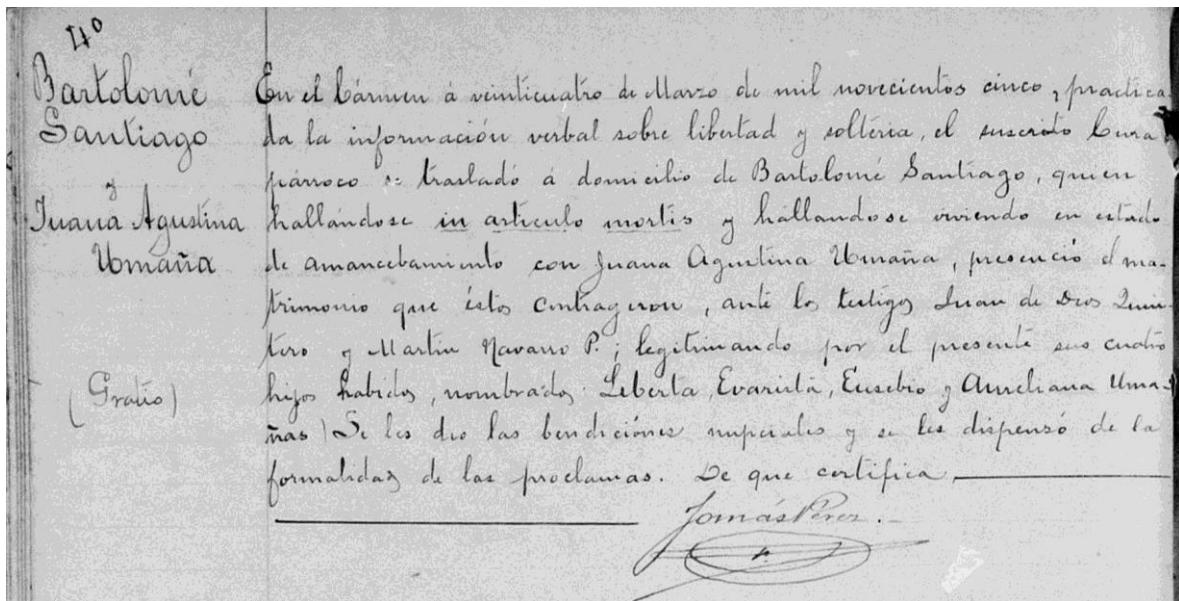 4º
Bartolomé
Santiago
y
Juana Agustina
Umaña
(Gratis)
En el Cármen á veinticuatro de Marzo de mil novecientos cinco, practica-
da la información verbal sobre libertad y solteria, el suscrito Cura
párroco se trasladó á domicilio de Bartolomé Santiago, quien
hallándose in articulo mortis y hallandose viviendo en estado
de amancebamiento con Juana Agustina Umaña, presenció el ma-
trimonio que éstos contrageron, ante los testigos Juan de Dios Quin-
tero y Martin Navarro P.; legitimando por el presente sus cuatro
hijos habidos, nombrados Liberta, Evarista, Eusebio y Aureliana Uma-
ñas) Se les dio las bendiciónes nupciales y se les dispensó de la
formalidad de las proclamas. De que certifica
Tomás Pérez.